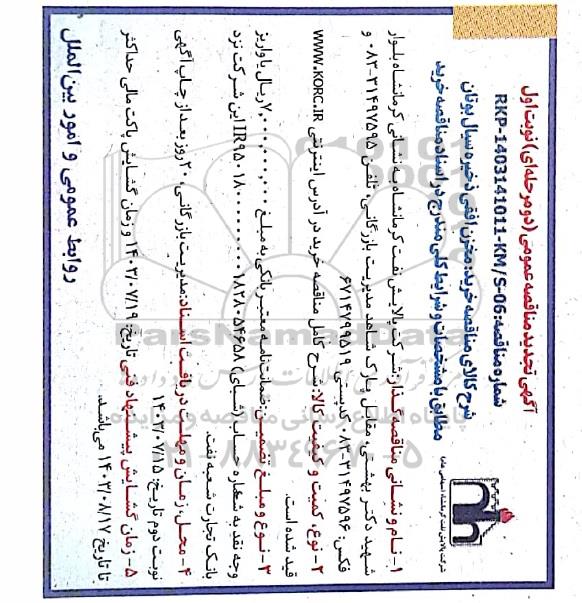 آگهی تجدید مناقصه عمومی (دو مرحله‌ای) نوبت اول
شماره مناقصه: RKP-1403141011-KM/S-06
شرح کالای مناقصه خرید: مخزن افقی ذخیره سیال بوتان
مطابق با مشخصات و شرایط کلی مندرج در اسناد مناقصه خرید
۱- نام و نشانی مناقصه گذار: شرکت پالایش نفت کرمانشاه به نشانی کرمانشاه بلوار
شهید دکتر بهشتی، مقابل پارک شاهد مدیریت بازرگانی تلفن ۳۱۴۹۷۵۹۵-۰۸۳ و
فکس: ۳۱۴۹۷۵۹۶-۰۸۳ کدپستی ۶۷۱۴۷۹۹۵۱۹
۲- نوع، کمیت و کیفیت کالا: شرح کامل مناقصه خرید در آدرس اینترنتی WWW.KORC.IR
قید شده است.
۳- نوع و مبلغ تضمین: ضمانت‌نامه معتبر بانکی به مبلغ ۷,۰۰۰,۰۰۰,۰۰۰ ریال یا واریز
وجه نقد به شماره حساب (شبای) این شرکت نزد
بانک تجارت شعبه نفت.
۴- محل، زمان و مهلت دریافت اسناد: مدیریت بازرگانی، ۲۰ روز بعد از چاپ آگهی
نوبت دوم تاریخ: ۱۴۰۳/۰۷/۱۵
۵- زمان گشایش پیشنهاد فنی تاریخ: ۱۴۰۳/۰۷/۱۹ و زمان گشایش پاکت مالی حداکثر
تا تاریخ ۱۴۰۳/۰۸/۱۷ می‌باشد.
روابط عمومی و امور بین‌الملل
ParsNamadData